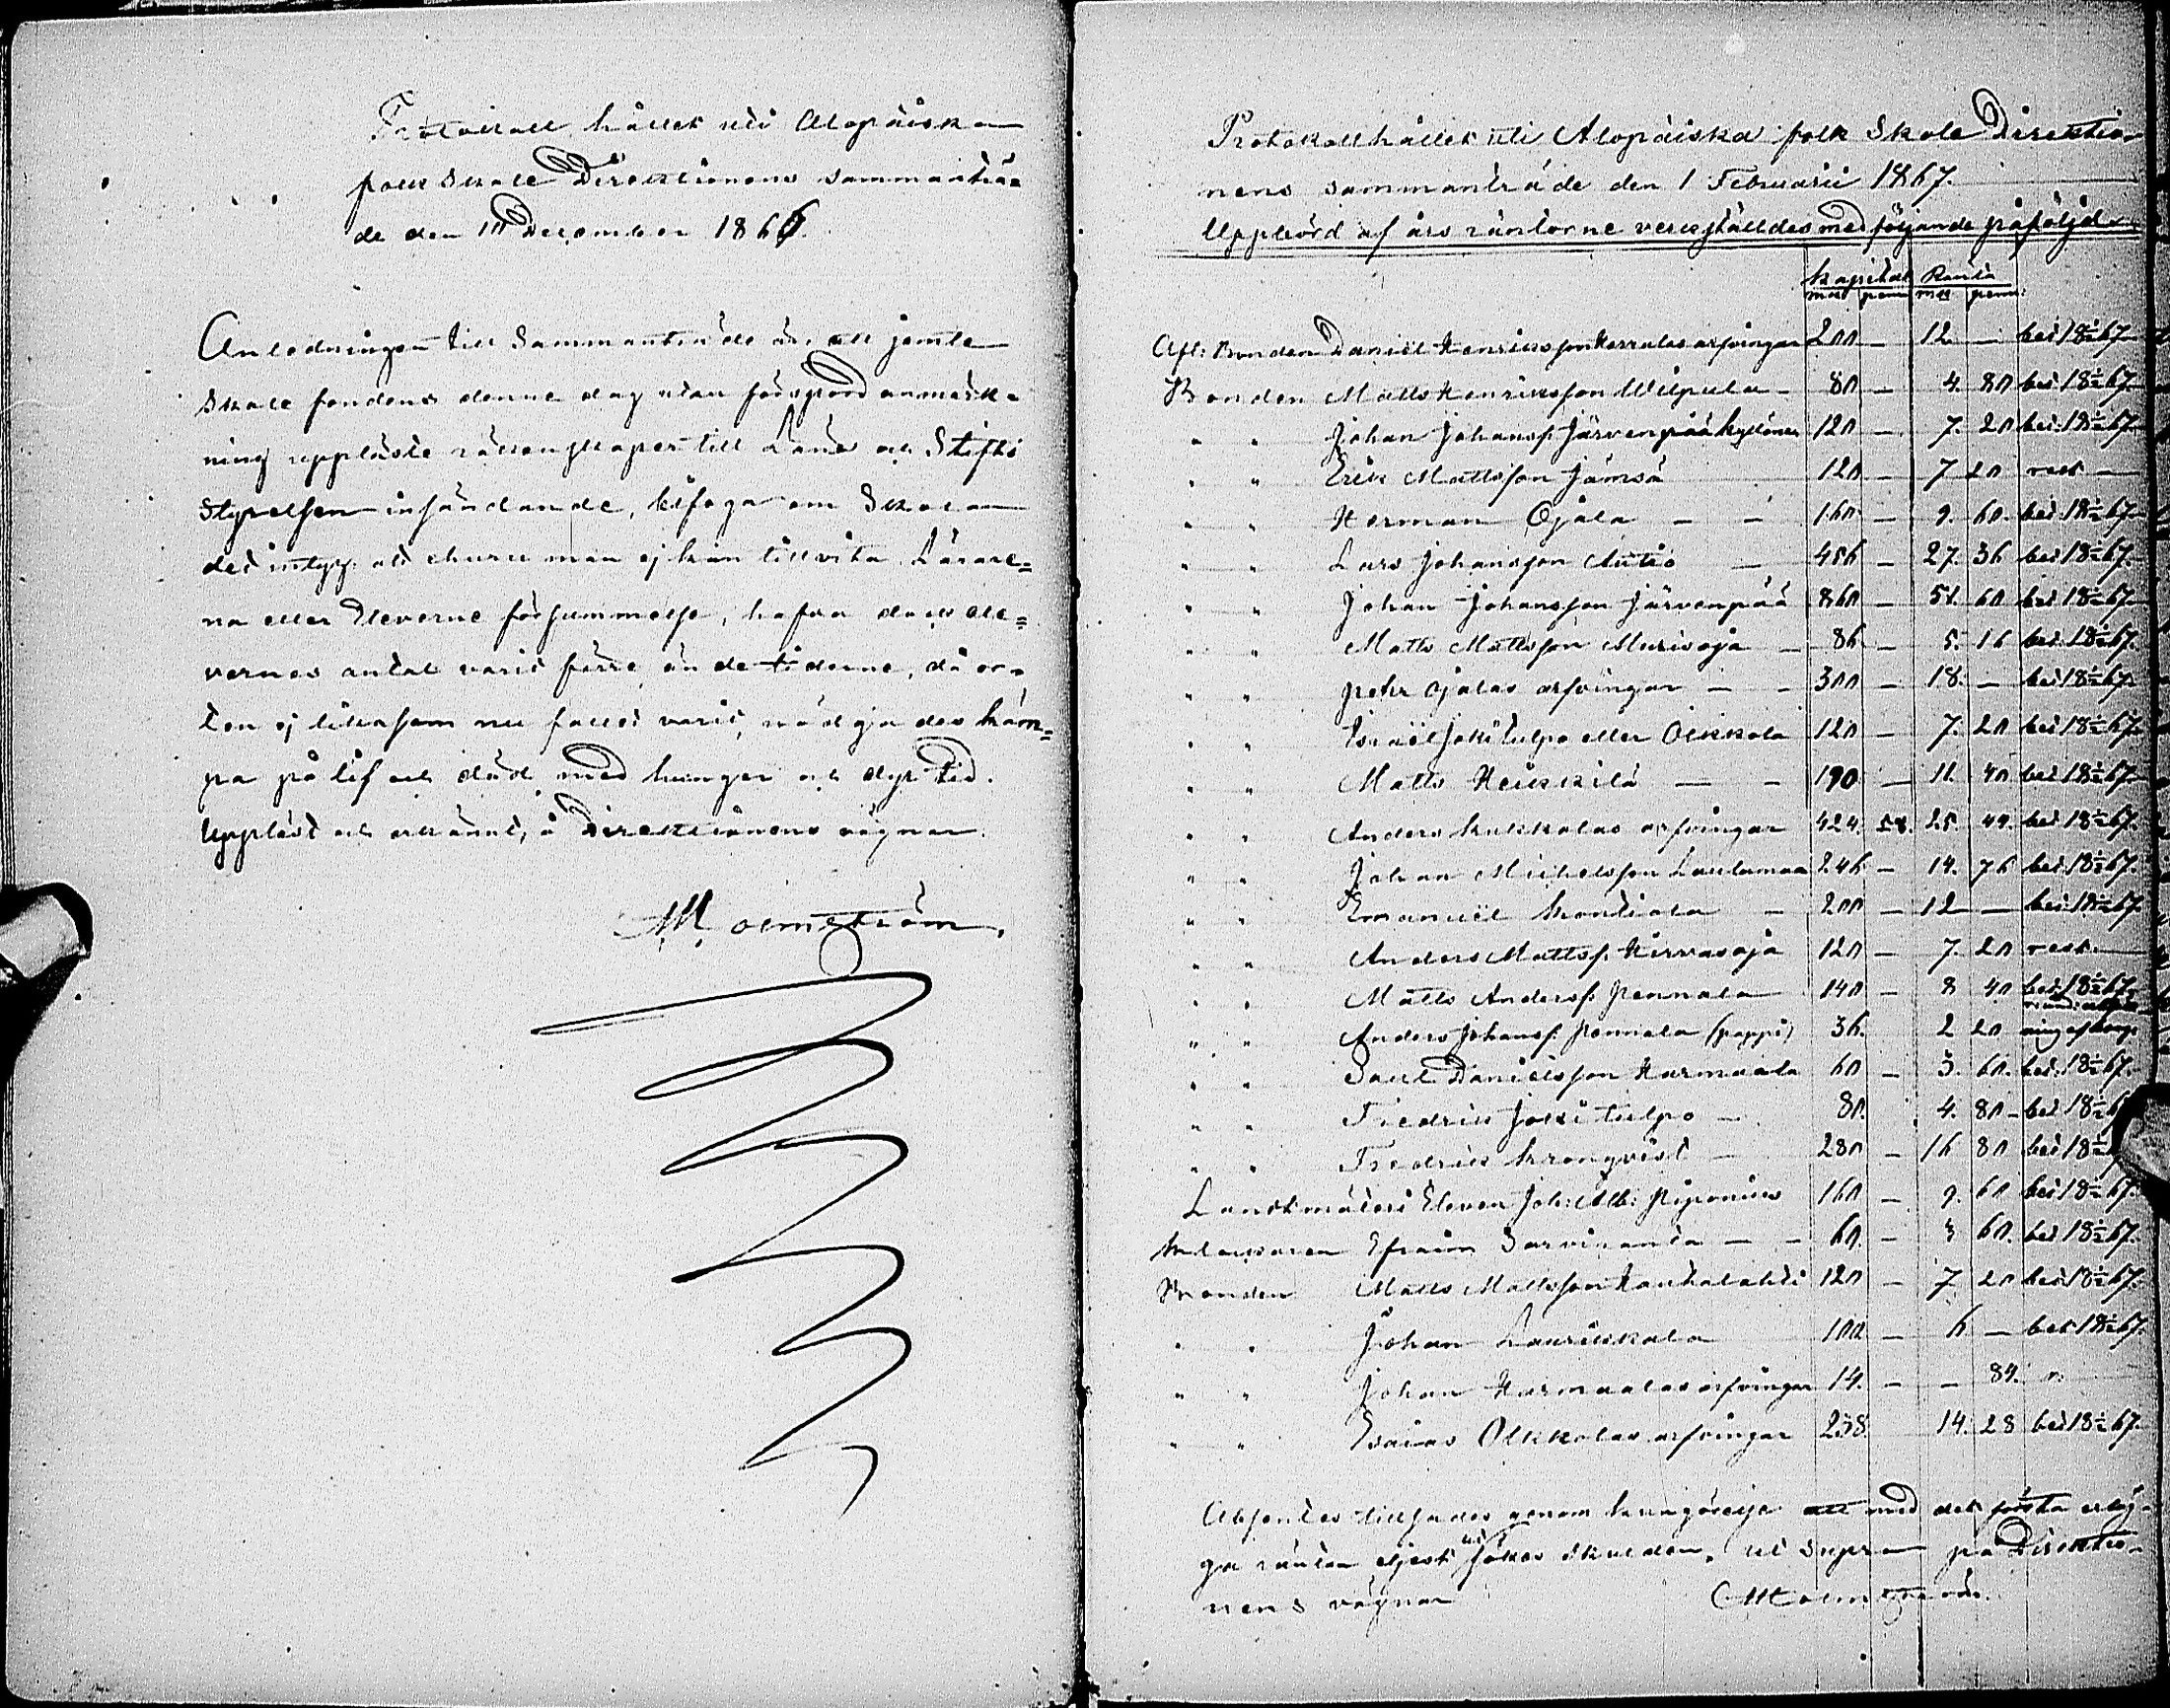 Protocoll hållet uti Alopäiska
folk Skole Direktionens sammanträ-
de den 1 December 1866.
Anledningen till Sammanträde är, att jemte
Skole fondens denne dag utan förspord anmärk-
ning uppläste räkenskaper till Läns och Stifts
Styrelsen insändande, bifoga om Skolan
det intyg att ehuru man ej kan tillvita Lärare-
na eller Eleverne försummelse, hafva dock ele-
vernes antal varit färre, än de tiderne, då or-
ten ej likasom nu fallet varit, nödgades käm-
pa på lif och död med hunger och dyr tid.
Uppläst och erkändt, å Direktionens vägnar.
M. Holmström.
Protokoll hållet uti Alopäiska folk Skole Direktio-
nens sammanträde den 1 Februarii 1867.
Uppbörd af års räntorne verkställdes med följande påföljd
Kapital Ränta
mark penni mk penni:
Afl: Bonden Daniel Henriksson Herralas arfvingar 200 — 12 — bet 18 1/2 67
Bonden Matts Henriksson Wilpula — 80 — 4. 80 bet 18 1/2 67
" " Johan Johanss. Järvenpää Kydönen 120 — 7. 20 bet. 18 1/2 67
" " Erik Mattsson Jämsä 120 — 7 20 rest —
" " Herman Ojala — — 160 — 9. 60. bet 18 1/2 67
" " Lars Johansson Autio — 456 — 27. 36 bet 18 1/2 67.
" " Johan Johansson Järvenpää 860 — 51. 60 bet 18 1/2 67
" " Matts Mattsson Murisoja — 86 — 5. 16 bet 18 1/2 67.
" " Pehr Ojalas arfvingar — — 300 — 18. — bet 18 1/2 67
" " Israel Jokitulpo eller Oikkola 120 — 7. 20 bet 18 1/2 67.
" " Matts Heikkilä — — 190 — 11. 40 bet 18 1/2 67
" " Anders Kukkolas arfvingar 424. 58. 25. 49. bet 18 1/2 67.
" " Johan Michelsson Lautamaa 246 — 14. 76 bet 18 1/2 67.
" " Emanuel Kontiola — 200 — 12 — bet 18 1/2 67.
" " Anders Matts. Hirvasoja 120 — 7. 20 rest. —
" " Matts Anderss. Pennala 140 — 8 40 bet. 18 1/2 67.
" " Anders Johanss. Pennala (pappi) 36. 2 20
" " Saul Danielsson Harmaala 60 — 3. 60. bet. 18 1/2 67.
" " Fredrik Jokitulpo — 80. 4. 80 — bet 18 1/2 67
" " Fredrik Kronqvist — 280 — 16 80 bet 18 1/2
Landtmäteri Eleven Joh: Alb: Piponius 160 — 9. 60 bet 18 1/2 67.
Efraim Sarviranta — — 60. — 3 60. bet 18 1/2 67.
Bonden Matts Mattsson Hauhalahti 120 — 7 20 bet 18 1/2 67.
" " Johan Laurikkala 100 — 6 — bet 18 1/2 67.
" " Johan Harmaalas arfvingar 14. — — 84. r.
" " Esaias Olkkolas arfvingar 238. 14. 28 bet 18 1/2 67.
Absentes tillsades genom kungörelse att med det första erläg-
ga räntan eljest sökes skulden. Ut supra på Direktio-
nens vägnar M Holmström.